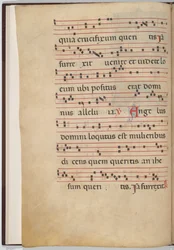 quia crucifixum queritis
surre xit venite et videte lo
cum ubi positus erat domi
nus alleluia Angelus
domini locutus est mulieribus
dicens quem queritis an ihe
sum queritis Iam surrexit